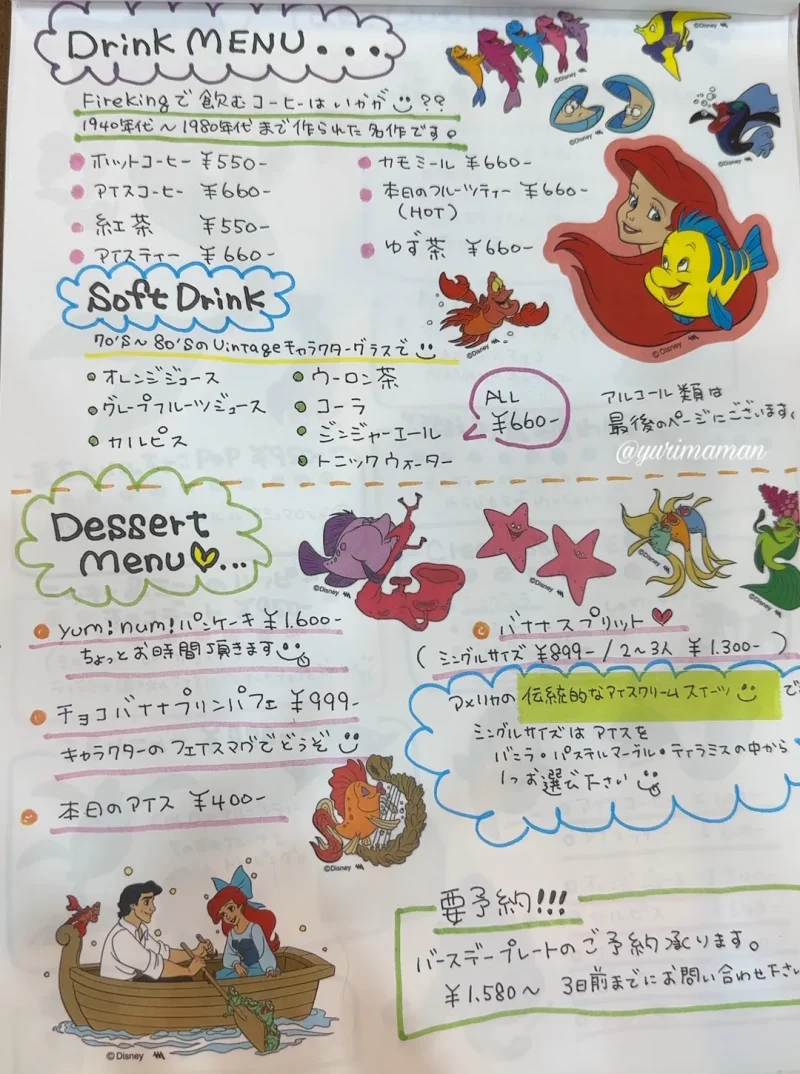 Drink MENU...
Firekingで飲むコーヒーはいかが??
1940年代〜1980年代まで作られた名作です。
ホットコーヒー ¥550-
アイスコーヒー ¥660-
紅茶 ¥550-
アイスティー ¥660-
カモミール ¥660-
本日のフルーツティー ¥660-
(HOT)
ゆず茶 ¥660-
Soft Drink
70'S〜80'SのVintageキャラクターグラスで
オレンジジュース
グレープフルーツジュース
カルピス
ウーロン茶
コーラ
ジンジャーエール
トニックウォーター
ALL
¥660-
アルコール類は
最後のページにございます。
@yurimaman
Dessert
Menu...
yum!num!パンケーキ ¥1.600-
ちょっとお時間頂きます
チョコバナナプリンパフェ ¥999-
キャラクターのフェイスマグでどうぞ
本日のアイス ¥400-
バナナスプリット
(シングルサイズ ¥899- / 2〜3人 ¥1.300-)
アメリカの伝統的なアイスクリームスイーツ で
シングルサイズはアイスを
バニラ・パステルマーブル・ティラミスの中から
1つお選び下さい
要予約!!!
バースデープレートのご予約承ります。
¥1.580〜 3日前までにお問い合わせ下さい
©Disney
©Disney
©Disney
©Disney
©Disney
©Disney
©Disney
©Disney
©Disney
©Disney
©Disney
©Disney